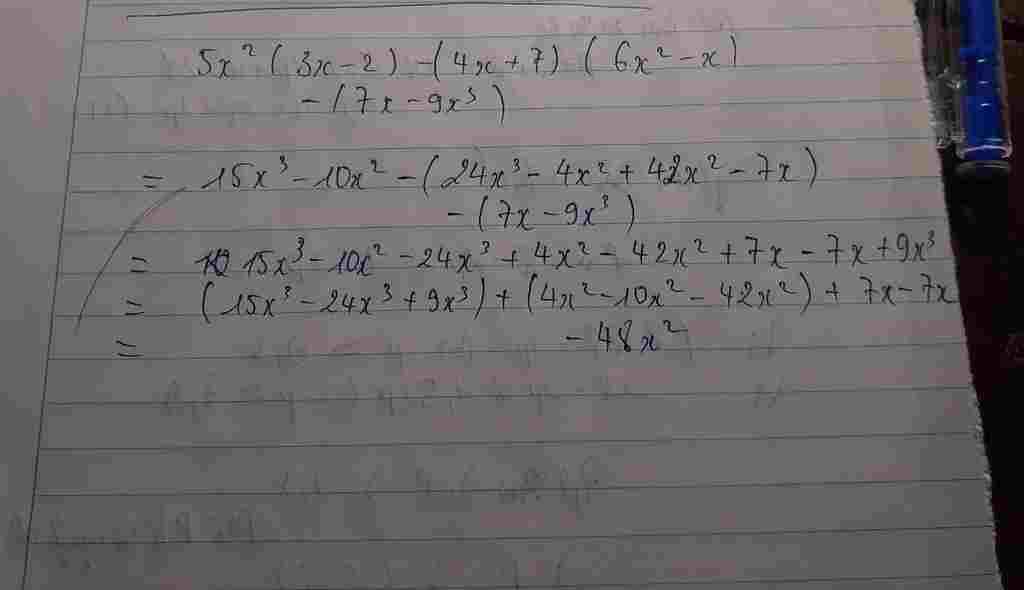 5x² (3x - 2) - (4x + 7) (6x² - x)
- (7x - 9x³)
= 15x³ - 10x² - (24x³ - 4x² + 42x² - 7x)
- (7x - 9x³)
= 15x³ - 10x² - 24x³ + 4x² - 42x² + 7x - 7x + 9x³
= (15x³ - 24x³ + 9x³) + (4x² - 10x² - 42x²) + 7x - 7x
= - 48x²